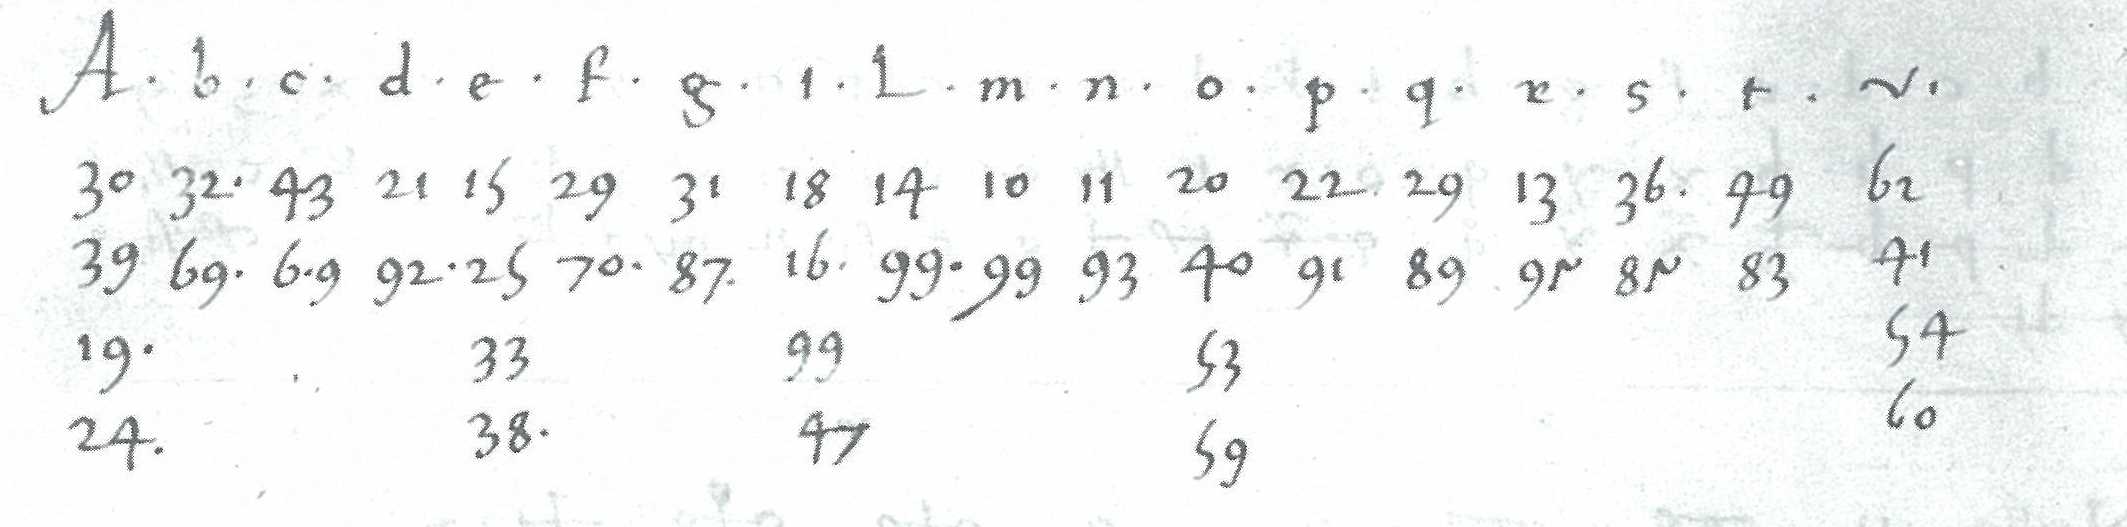 A . b . c . d . e . f . g . i . L . m . n . o . p . q . r . s . t . v .
30 32. 43 21 15 29 31 18 14 10 11 20 22. 29 13 36. 49 62
39 69. 6.9 92. 25 70. 87. 16. 99. 99 93 40 91 89 9r 8r 83 41
19. 33 99 53 54
24. 38. 47 59 60